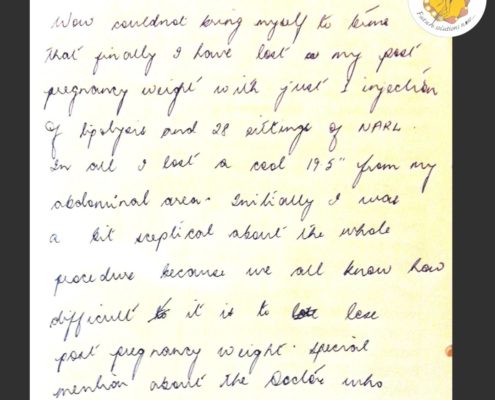 French solutions now...
Wow couldnot bring myself to terms
that finally I have lost my post
pregnancy weight with just 1 injection
of lipolysis and 28 sittings of NARL.
In all I lost a cool 19.5" from my
abdominal area. Initially I was
a bit sceptical about the whole
procedure because we all know how
difficult it is to lose
post pregnancy weight. Special
mention about the Doctor who